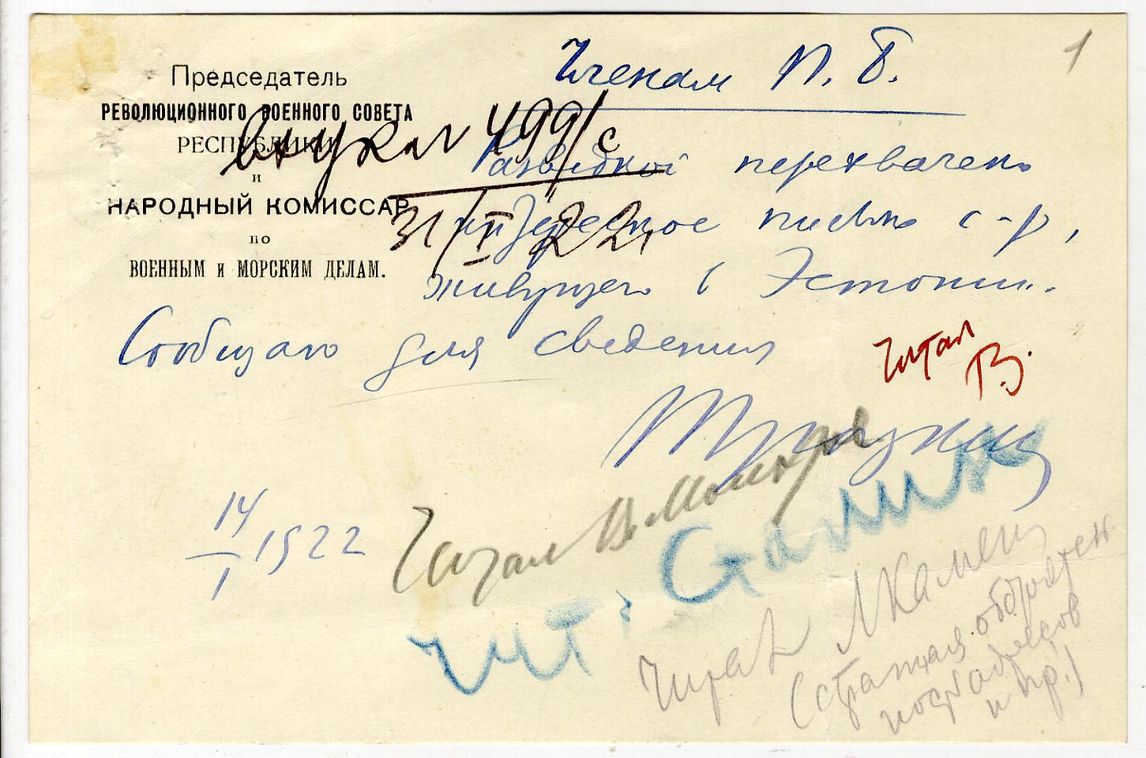 1
Председатель
РЕВОЛЮЦИОННОГО ВОЕННОГО СОВЕТА
РЕСПУБЛИКИ
и
НАРОДНЫЙ КОМИССАР
по
ВОЕННЫМ и МОРСКИМ ДЕЛАМ.
Членам П. Б.
вх 499/с
31/I 22
Разведкой перехвачено
интересное письмо с-р,
живущего в Эстонии.
Сообщаю для сведения
Троцкий
14/I 1922
Читал
В.
Читал В. Молотов
чит. Сталин
Читал ЛКаменев
(
и пр.)